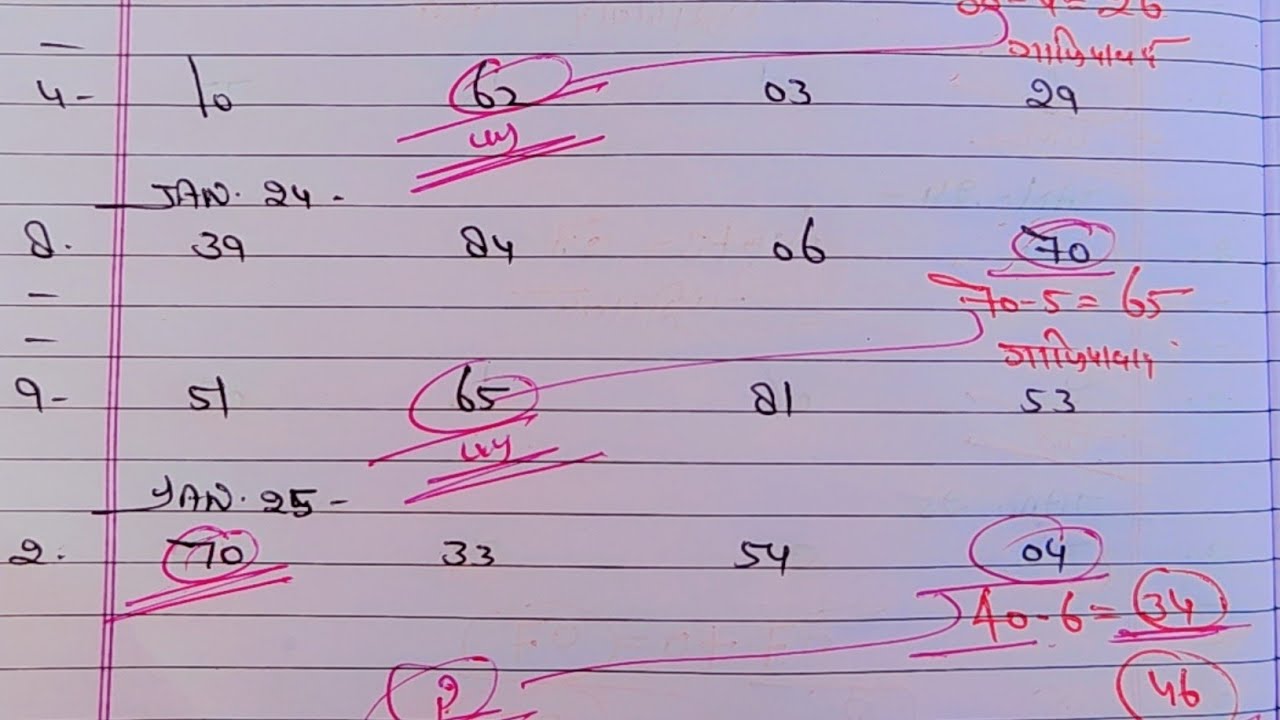 4- 10 62 03 29
JAN. 24 -
8. 39 84 06 70
70-5=65
9- 51 65 81 53
JAN. 25 -
2. 70 33 54 04
40-6=34
? 46